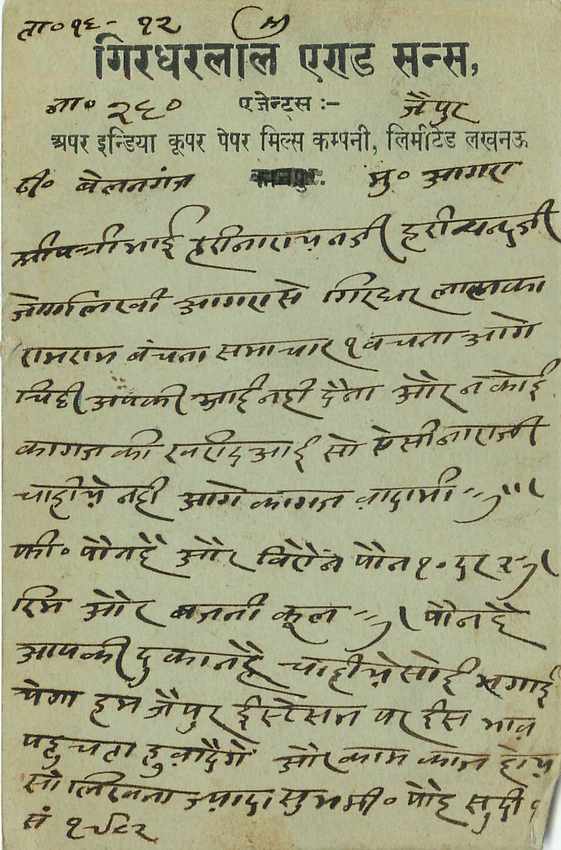 ता॰ १६- १२
गिरधरलाल एण्ड सन्स,
ना॰ २६० एजेन्ट्स :- जैपुर
अपर इन्डिया कूपर पेपर मिल्स कम्पनी, लिमीटेड लखनऊ
ठी॰ बेलनगंज कानपुर. मु॰ आगरा
भाई हरीनारायनजी
लिखी आगरा से गिरधर लालका
रामराम बंचना समाचार १ बचना आगे
चिठी आपकी आई नही और न कोई
कागज की खरीद आई सो ऐसी नाराजी
चाहीये नही आगे कागज बादामी
फी॰ पौन है और पौन १० दर
रिम और कूल पौन है
आपकी दुकान है चाहीये सोई मगाई
येगा हम जैपुर ईस्टेसन पर ईस भाव
पहुचता हुवा देंगे और काम काज होय
सो लिखना ज्यादा सुभ मी॰ पौह सुदी १
सं १९८२